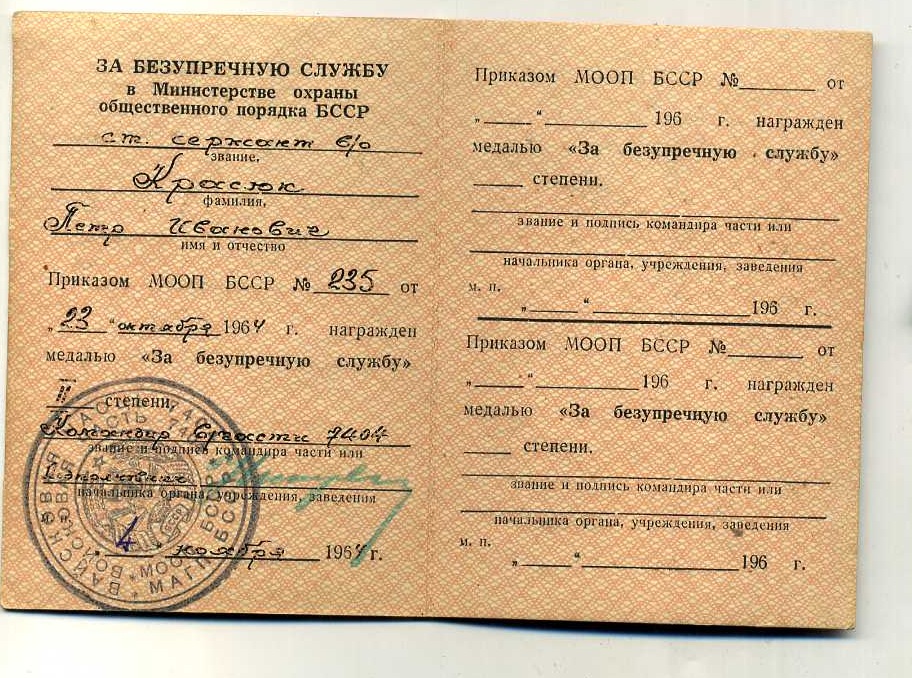 ЗА БЕЗУПРЕЧНУЮ СЛУЖБУ
в Министерстве охраны
общественного порядка БССР
ст. сержант в/с
звание,
Красюк
фамилия,
Петр Иванович
имя и отчество
Приказом МООП БССР № 235 от
„23" октября 1964 г. награжден
медалью «За безупречную службу»
II степени
Командир в/части 7404
звание и подпись командира части или
начальника органа, учреждения, заведения
4 ноября 1964 г.
Приказом МООП БССР № от
„ " 196 г. награжден
медалью «За безупречную службу»
степени.
звание и подпись командира части или
начальника органа, учреждения, заведения
м. п.
„ " 196 г.
Приказом МООП БССР № от
„ " 196 г. награжден
медалью «За безупречную службу»
степени.
звание и подпись командира части или
начальника органа, учреждения, заведения
м. п.
„ " 196 г.